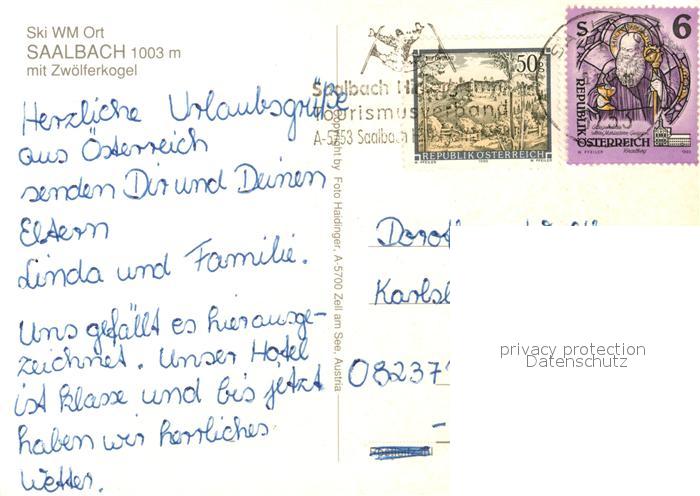 Ski WM Ort
SAALBACH 1003 m
mit Zwölferkogel
Herzliche Urlaubsgrüße
aus Österreich
senden Dir und Deinen
Eltern
Linda und Familie.
Uns gefällt es hierausge-
zeichnet. Unser Hotel
ist klasse und bis jetzt
haben wir herrliches
Wetter.
Saalbach
Tourismusverband
A-5753 Saalbach
50g
REPUBLIK ÖSTERREICH
S 6
REPUBLIK
ÖSTERREICH
by Foto Haidinger, A-5700 Zell am See, Austria
Karls
08237
privacy protection
Datenschutz